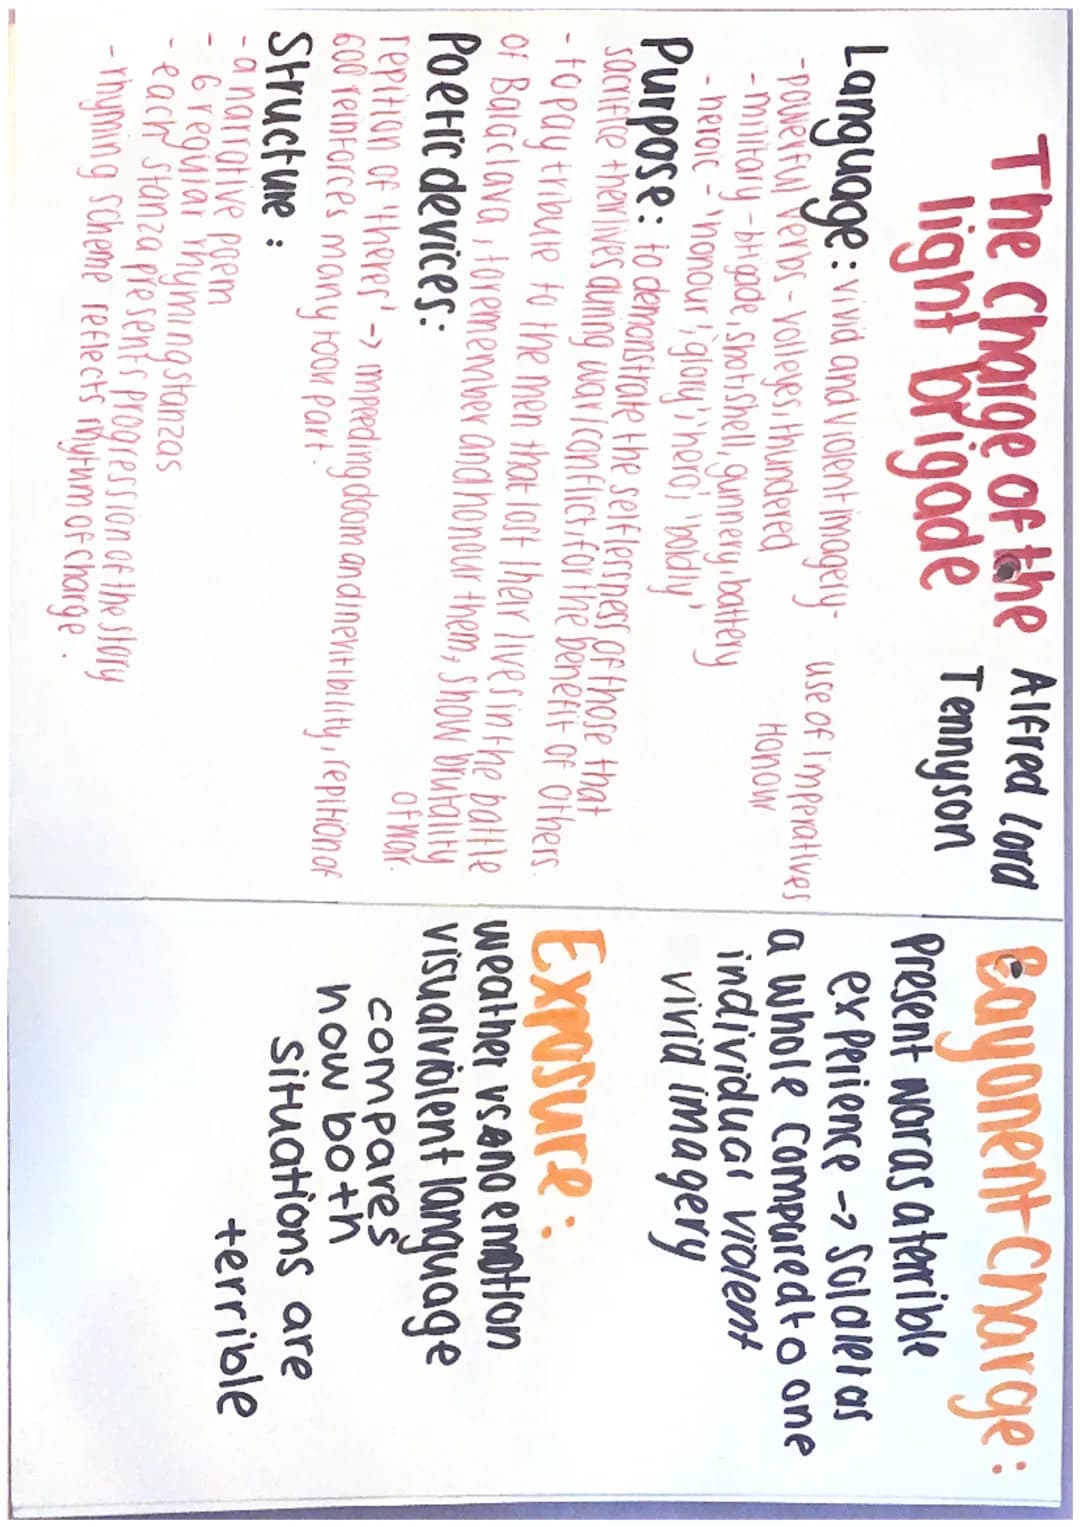 The Charge of the
light brigade
Alfred Lord
Tennyson
Language: vivid and violent imagery-
use of imperatives
-powerful verbs - volleyed, thundered
Honour
-military -brigade, shot, shell, gunnery, battery
-heroic - 'honour', 'glory', 'hero', 'boldly'
Purpose: to demonstrate the selflessness of those that
sacrifice their lives during war/conflict, for the benefit of others.
- to pay tribute to the men that lost their lives in the battle
of Balaclava, to remember and honour them, show brutality
of war.
Poetic devices:
repition of 'theres' -> impeding doom and inevitibility, repition of
600 reinforces many took part.
Structure:
- a narrative poem
- 6 regular rhyming stanzas
- each stanza presents progression of the story
- rhyming scheme reflects rhytum of charge.
Bayonent-Charge:
Present war as a terrible
experience -> Soldier as
a whole compared to one
individual violent
vivid imagery
Exposure:
weather vs no emotion
visual violent language
compares
how both
situations are
terrible